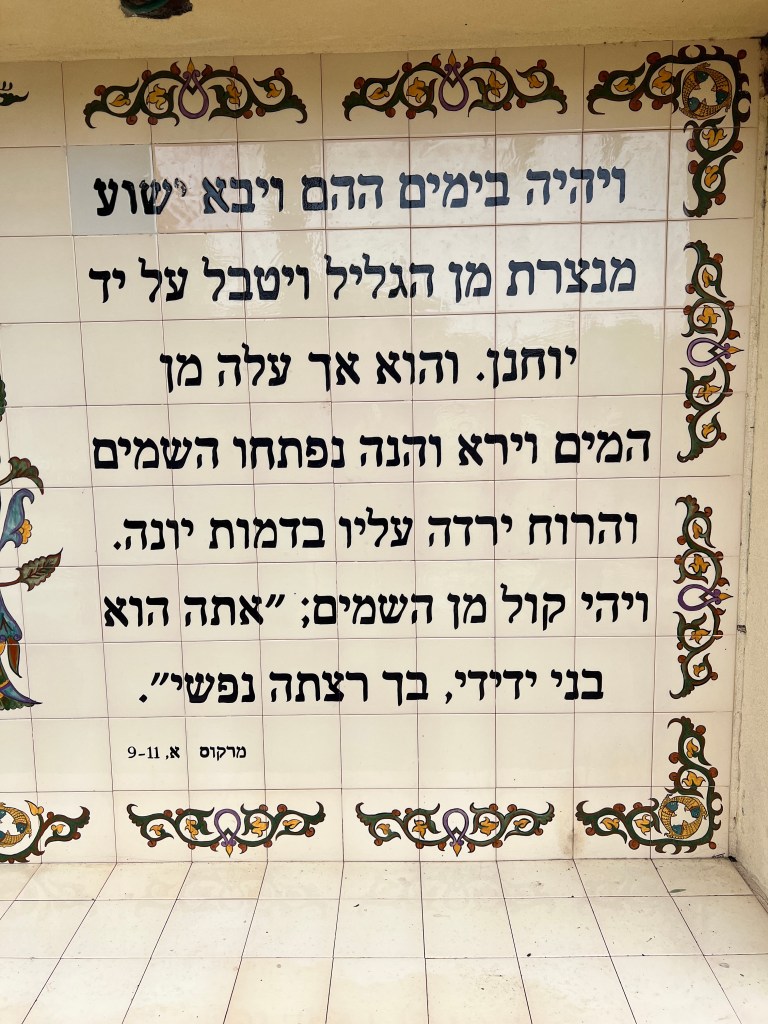 ויהיה בימים ההם ויבא ישוע
מנצרת מן הגליל ויטבל על יד
יוחנן. והוא אך עלה מן
המים וירא והנה נפתחו השמים
והרוח ירדה עליו בדמות יונה.
ויהי קול מן השמים; "אתה הוא
בני ידידי, בך רצתה נפשי".
מרקוס א, 9-11